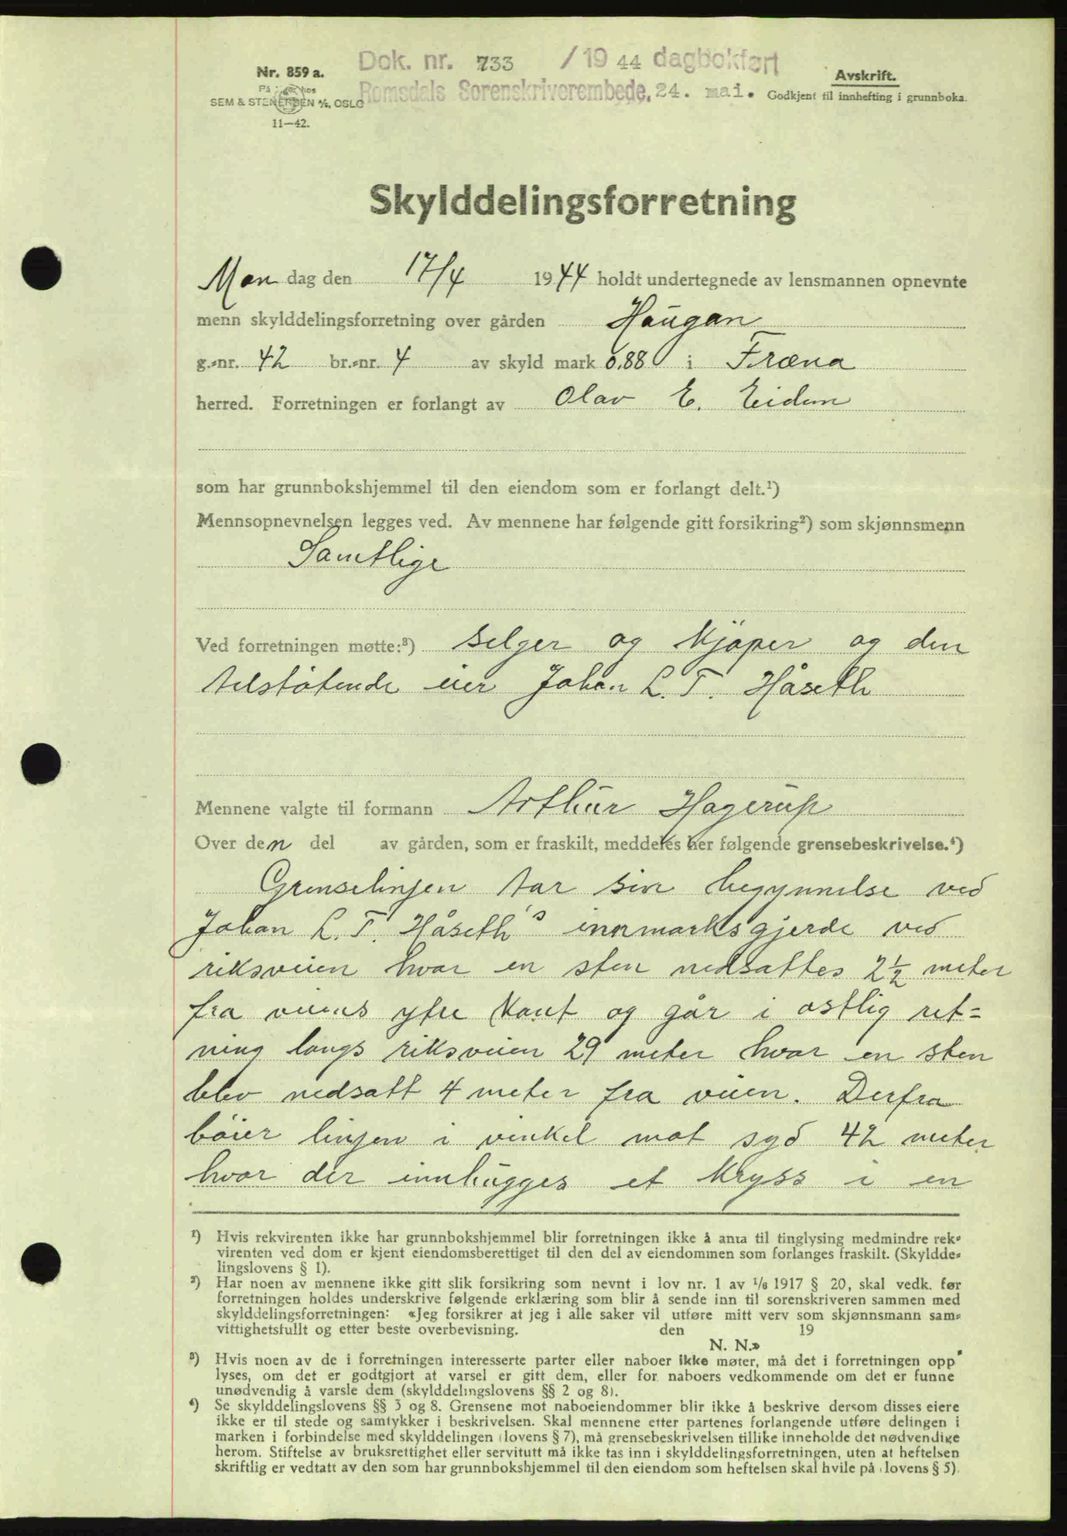 Nr. 859 a.
SEM & STENERSEN A/S, OSLO
11—42.
Dok. nr. 733 / 1944 dagbokført
Romsdals Sorenskriverembede, 24. mai.
Avskrift.
Godkjent til innhefting i grunnboka.
Skylddelingsforretning
Mandag den 17/4 1944 holdt undertegnede av lensmannen opnevnte
menn skylddelingsforretning over gården Haugan
g.-nr. 42 br.-nr. 4 av skyld mark 0.88 i Fræna
herred. Forretningen er forlangt av Olav E. Eidem
som har grunnbokshjemmel til den eiendom som er forlangt delt.¹)
Mennsopnevnelsen legges ved. Av mennene har følgende gitt forsikring²) som skjønnsmenn
Samtlige
Ved forretningen møtte:³) selger og kjøper og den
tilstøtende eier Johan L. T. Håseth
Mennene valgte til formann Arthur Hagerup
Over den del av gården, som er fraskilt, meddeles her følgende grensebeskrivelse.⁴)
Grenselinjen tar sin begynnelse ved
Johan L. T. Håseth's innmarksgjerde ved
riksveien hvor en sten nedsattes 2½ meter
fra veiens ytre kant og går i østlig ret=
ning langs riksveien 29 meter hvor en sten
blev nedsatt 4 meter fra veien. Derfra
bøier linjen i vinkel mot syd 42 meter
hvor der innhugges et kryss i en
¹) Hvis rekvirenten ikke har grunnbokshjemmel blir forretningen ikke å anta til tinglysing medmindre rek-
virenten ved dom er kjent eiendomsberettiget til den del av eiendommen som forlanges fraskilt. (Skyldde-
lingslovens § 1).
²) Har noen av mennene ikke gitt slik forsikring som nevnt i lov nr. 1 av 1/6 1917 § 20, skal vedk. før
forretningen holdes underskrive følgende erklæring som blir å sende inn til sorenskriveren sammen med
skylddelingsforretningen: «Jeg forsikrer at jeg i alle saker vil utføre mitt verv som skjønnsmann sam-
vittighetsfullt og etter beste overbevisning. den 19
N. N.»
³) Hvis noen av de i forretningen interesserte parter eller naboer ikke møter, må det i forretningen opp
lyses, om det er godtgjort at varsel er gitt dem, eller for naboers vedkommende om det er funne
unødvendig å varsle dem (skylddelingslovens §§ 2 og 8).
⁴) Se skylddelingslovens §§ 3 og 8. Grensene mot naboeiendommer blir ikke å beskrive dersom disses eiere
ikke er til stede og samtykker i beskrivelsen. Skal mennene etter partenes forlangende utføre delingen i
marken i forbindelse med skylddelingen (lovens § 7), må grensebeskrivelsen tillike inneholde det nødvendige
herom. Stiftelse av bruksrettighet eller servitutt må ikke tas inn i skylddelingsforretningen, uten at heftelsen
skriftlig er vedtatt av den som har grunnbokshjemmel til den eiendom som heftelsen skal hvile på (lovens § 5).